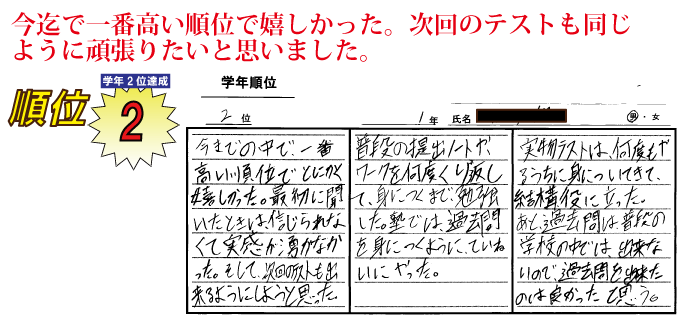 今迄で一番高い順位で嬉しかった。次回のテストも同じ
ように頑張りたいと思いました。
学年2位達成
順位
2
学年順位
2 位
1 年 氏名
男・女
今までの中で、一番
高い順位でとにかく
嬉しかった。最初に聞
いたときは、信じられな
くて実感が湧かなか
った。そして、次回のテストも出
来るようにしようと思った。
普段の提出ノートや、
ワークを何度くり返し
て、身につくまで勉強
した。塾では、過去問
を身につくように、ていね
いにやった。
実物テストは、何度もや
るうちに身についてきて、
結構役に立った。
あと、過去問は普段の
学校の中では、出来な
いので、過去問を出来た
のは良かったと思う。